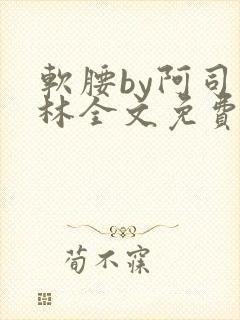 軟腰by阿司
林全文免費
荀不寐